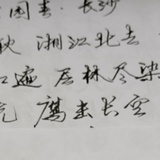 园春·长沙
秋 湘江北去
红遍 层林尽染
流 鹰击长空